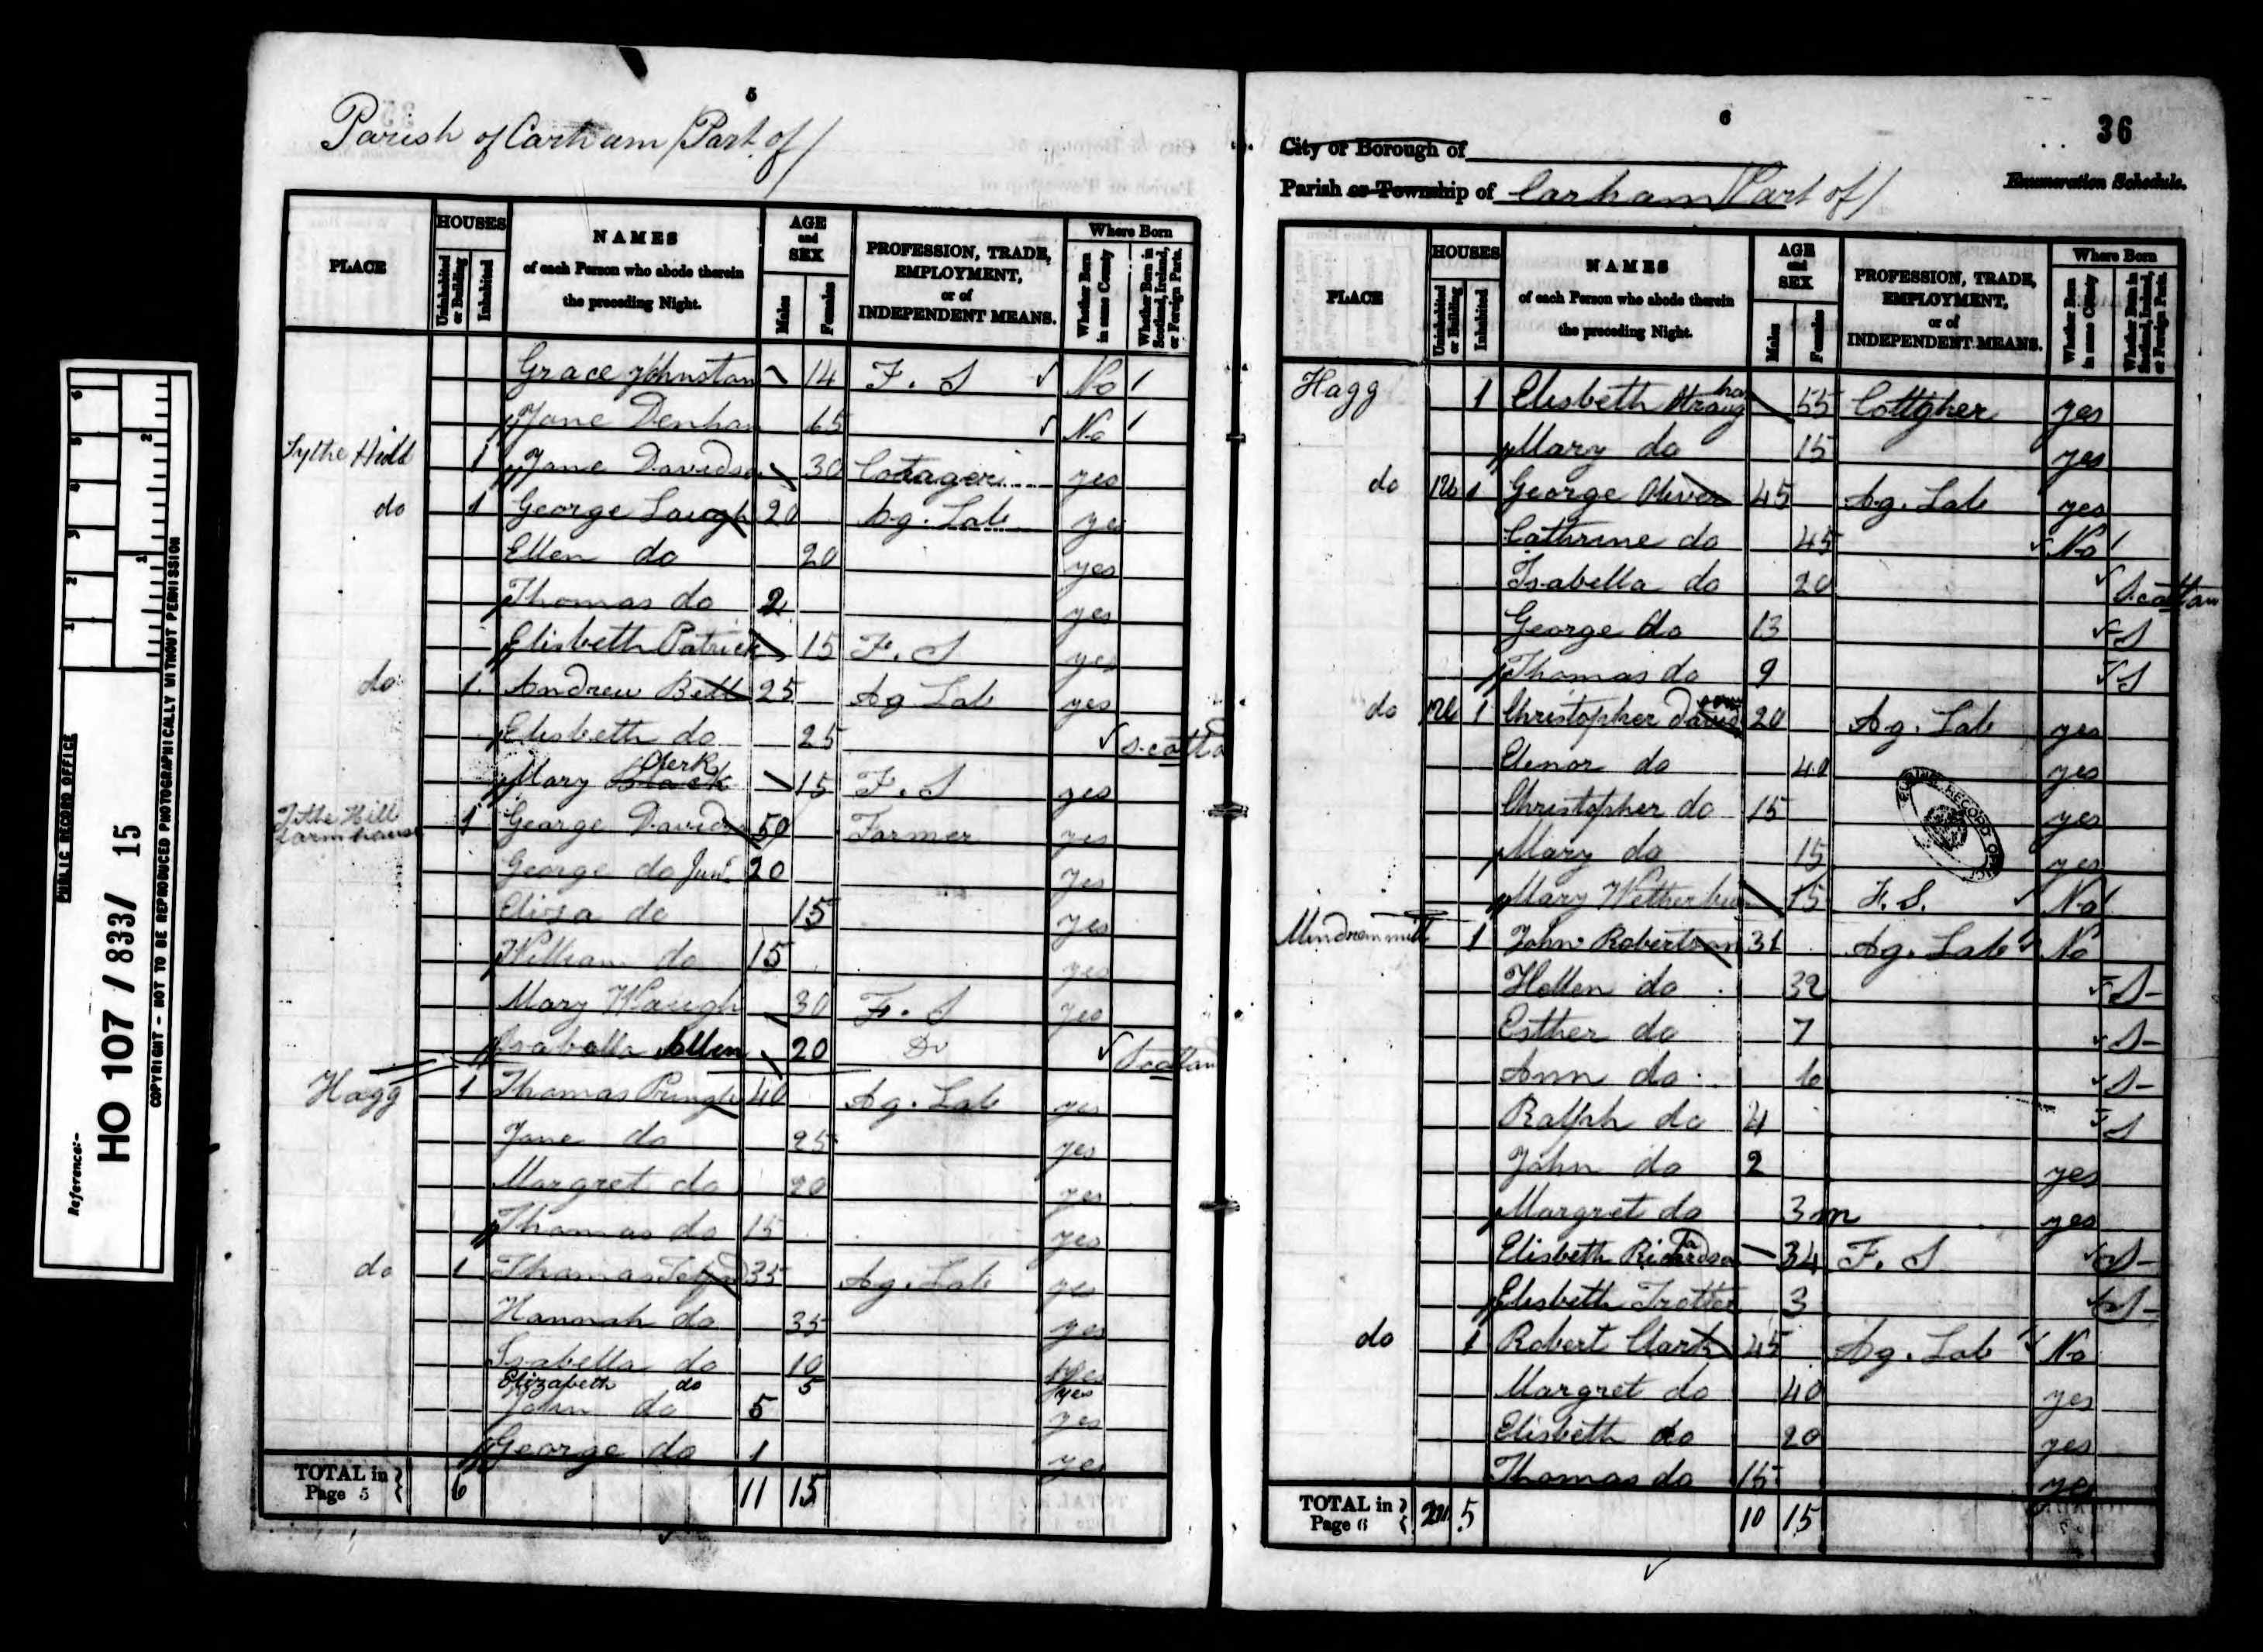 5
Parish of Carham (Part of)
PLACE
HOUSES
Uninhabited or Building
Inhabited
NAMES
of each Person who abode therein
the preceding Night.
AGE
and
SEX
Males
Females
PROFESSION, TRADE,
EMPLOYMENT,
or of
INDEPENDENT MEANS.
Where Born
Whether Born in same County
Whether Born in Scotland, Ireland, or Foreign Parts.
Grace Johnston 14 F. S No
Jane Denham 65 No
1 Jane Davidson 30 yes
do 1 George 20 Ag. Lab yes
Ellen do 20 yes
Thomas do 2 yes
Elisbeth Patrick 15 F. S yes
do 1 Andrew Bell 25 Ag Lab yes
Elisbeth do 25
Mary Clerk 15 F. S yes
Hill Farm house 1 George 50 Farmer yes
George do Junr 20 yes
Eliza do 15 yes
William do 15 yes
Mary Waugh 30 F. S yes
Isabella Allen 20 Do Scotlan
Hagg 1 Thomas Pringle 40 Ag. Lab yes
Jane do 25 yes
Margret do 20 yes
Thomas do 15 yes
do 1 Thomas 35 Ag. Lab yes
Hannah do 35 yes
Isabella do 10 yes
Elizabeth do 5 yes
John do 5 yes
George do 1 yes
TOTAL in Page 5 6 11 15
6
36
City or Borough of
Parish or Township of Carham (Part of)
Enumeration Schedule.
PLACE
HOUSES
Uninhabited or Building
Inhabited
NAMES
of each Person who abode therein
the preceding Night.
AGE
and
SEX
Males
Females
PROFESSION, TRADE,
EMPLOYMENT,
or of
INDEPENDENT MEANS.
Where Born
Whether Born in same County
Whether Born in Scotland, Ireland, or Foreign Parts.
Hagg 1 Elisbeth 55 yes
Mary do 15 yes
do 1 George Oliver 45 Ag. Lab yes
Cathrine do 45 No
Isabella do 20 Scotlan
George do 13 S
Thomas do 9 S
do 1 Christopher 20 Ag. Lab yes
Elenor do 40 yes
Christopher do 15 yes
Mary do 15 yes
Mary 15 F. S. No
1 John Robertson 31 Ag. Lab No
Hellen do 32 S
Esther do 7 S
Ann do 6 S
Ralph do 4 S
John do 2 yes
Margret do 3 m yes
Elisbeth Richardson 34 F. S S
Elisbeth Trotter 3 S
do 1 Robert Clark 45 Ag. Lab No
Margret do 40 yes
Elisbeth do 20 yes
Thomas do 15 yes
TOTAL in Page 6 5 10 15
PUBLIC RECORD OFFICE
Reference:-
HO 107 / 833 / 15
COPYRIGHT - NOT TO BE REPRODUCED PHOTOGRAPHICALLY WITHOUT PERMISSION